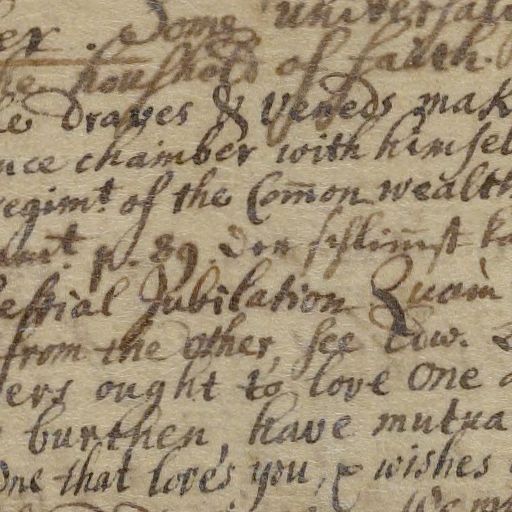 er. Some universal
houshold of faith.
Drayes & veneds mak
nce chamber with himsel
regimt. of the Com̄on wealth
p. 89. Der schlim̄st
lestial Jubilation Quam
from the other, see Edw.
ers ought to love One
burthen, have mutua
One that loves you, & wishes